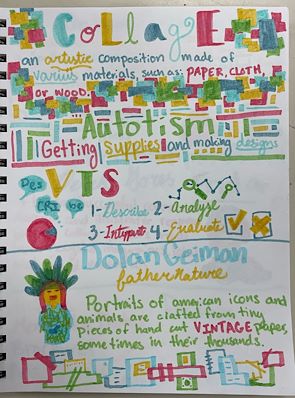 COLLAGE
an artistic composition made of
various materials, such as: PAPER, CLOTH,
or WOOD.
Autotism
Getting supplies and making designs
VTS
Des
CRI be
1-Describe 2-Analyze
3-Intypart 4-Evaluate
Dolan Geiman
father nature
Portraits of american icons and
animals are clafted from tiny
pieces of hand cut VINTAGE paper,
some times in their thousands.